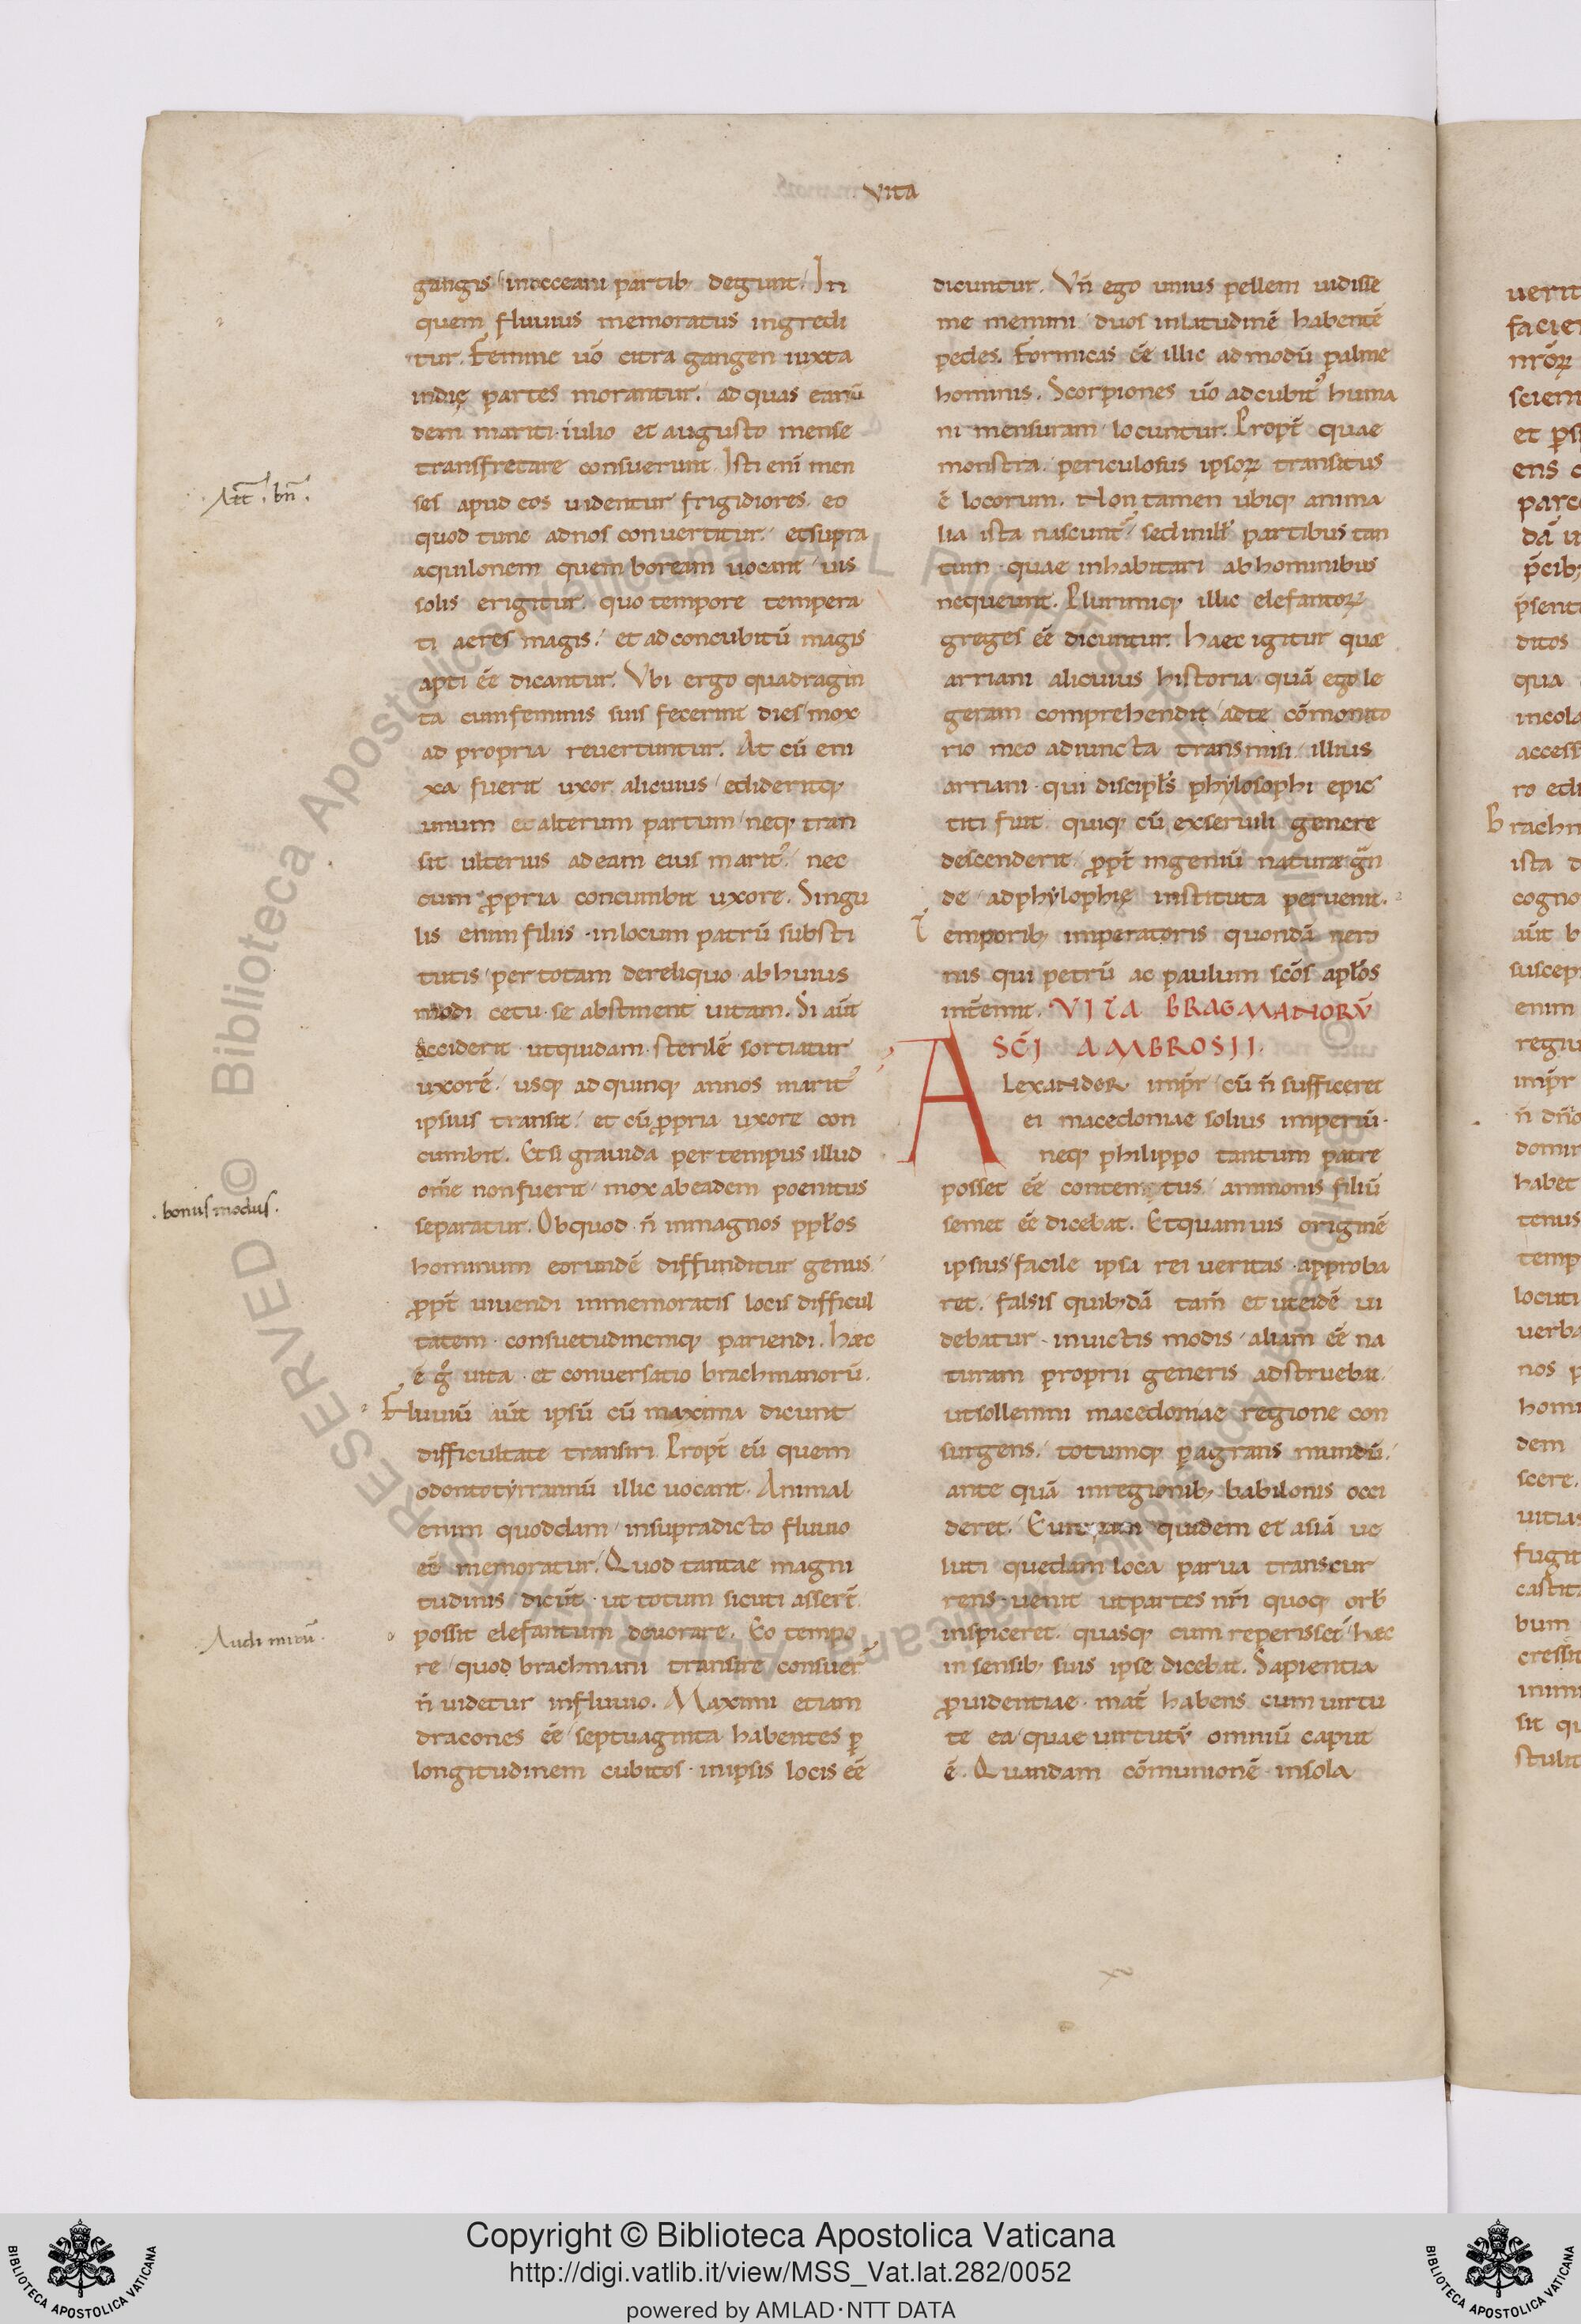 Vita
gangis in occeani partib; degunt. In
quem fluuius memoratus ingredi
tur. Femine uo citra gangen iuxta
indię partes morantur. ad quas earū
dem mariti iulio et augusto mense
transfretare consuerunt. Isti enī men
ses apud eos uidentur frigidiores. eo
quod tunc ad nos conuertitur. et supra
aquilonem quem boream uocant
solis erigitur. quo tempore tempera
ti aeres magis. et ad concubitū magis
apti ēē dicantur. Vbi ergo quadragin
ta cum feminis suis fecerint dies mox
ad propria reuertuntur. At cū eni
xa fuerit uxor alicuius edideritq;
unum et alterum partum neq; tran
sit ulterius ad eam eius marit᾽ nec
cum propria concumbit uxore. Singu
lis enim filiis in locum patrū substi
tutis per totam dereliquo ab huius
modi cetu se abstinent uitam. Si aūt
acciderit ut quidam sterilē sortiatur
uxorē. usq; ad quinq; annos marit᾽
ipsius transit. et cū propria uxore con
cumbit. Et si grauida per tempus illud
om̄e non fuerit mox ab eadem poenitus
separatur. Ob quod n̄ in magnos ppl̄os
hominum eorundē diffunditur genus.
propt̄ uiuendi in memoratis locis difficul
tatem consuetudinemq; pariendi. Haec
ē g° uita et conuersatio brachmanorū.
Fluuiū aūt ipsū cū maxima dicunt
difficultate transiri. Propt̄ eū quem
odontotyrrannū illic uocant. Animal
enim quoddam in supradicto fluuio
ēē memoratur. Quod tantae magni
tudinis dicūt ut totum sicuti assert̄
possit elefantum deuorare. Eo tempo
re quod brachmani transire consuer̄
n̄ uidetur in fluuio. Maximi etiam
dracones ēē septuaginta habentes p
longitudinem cubitos in ipsis locis ēē
dicuntur. Vn̄ ego unius pellem uidisse
me memini duos in latitudinē habentē
pedes. Formicas ēē illic ad modū palme
hominis. Scorpiones uo ad cubit᾽ huma
ni mensuram locuntur. Propt̄ quae
monstra periculosus ipsoꝝ transitus
ē locorum. Non tamen ubiq; anima
lia ista nascunt᾽ sed in ill᾽ partibus tan
tum quae inhabitari ab hominibus
nequeunt. Plurimiq; illic elefantoꝝ
greges ēē dicuntur. Haec igitur quae
arriani alicuius historia quā ego le
geram comprehendit ad te cōmonito
rio meo adiuncta transmisi illius
arriani qui discipl᾽s phylosophi epic
titi fuit. quiq; cū ex seruili genere
descenderit propt̄ ingeniū naturae gn̄
de ad phylophię instituta peruenit.
Temporib; imperatoris quondā nero
nis qui petrū ac paulum scōs apl̄os
int̄emit. VITA BRAGMANORV̄
SC̄I AMBROSII.
ALexaNdeR imp̄r cū n̄ sufficeret
ei macedoniae solius imperiū
neq; philippo tantum patre
posset ēē contentus. ammonis filiū
semet ēē dicebat. Et quamuis originē
ipsius facile ipsa rei ueritas approba
ret. falsis quibdā tam̄ et uteidē ui
debatur inuictis modis aliam ēē na
turam proprii generis adstruebat.
ut sollemni macedoniae regione con
surgens. totumq; pagrans mundū.
ante quā in regionib; babilonis occi
deret. quidem et asiā ue
luti quedam loca parua transcur
rens uenit ut partes nr̄i quoq; orb᾽
inspiceret. quasq; cum reperisset haec
in sensib; suis ipse dicebat. Sapientia
prouidentiae mat̄ habens cum uirtu
te ea quae uirtutū omniū caput
ē. Quandam cōmunionē insola
Att̄. bn̄.
bonus modus.
Audi mirū.
uerit
et
ens
ditos
qua
incola
ro
ista d
cogno
enim
regiu
imp̄r
habet
tenus
temp
locuti
uerba
nos p
homi
dem
scere.
uitias
fugit
bum
sit qu
Copyright © Biblioteca Apostolica Vaticana
http://digi.vatlib.it/view/MSS_Vat.lat.282/0052
powered by AMLAD·NTT DATA
BIBLIOTECA APOSTOLICA VATICANA
BIBLIOTECA APOSTOLICA VATICANA